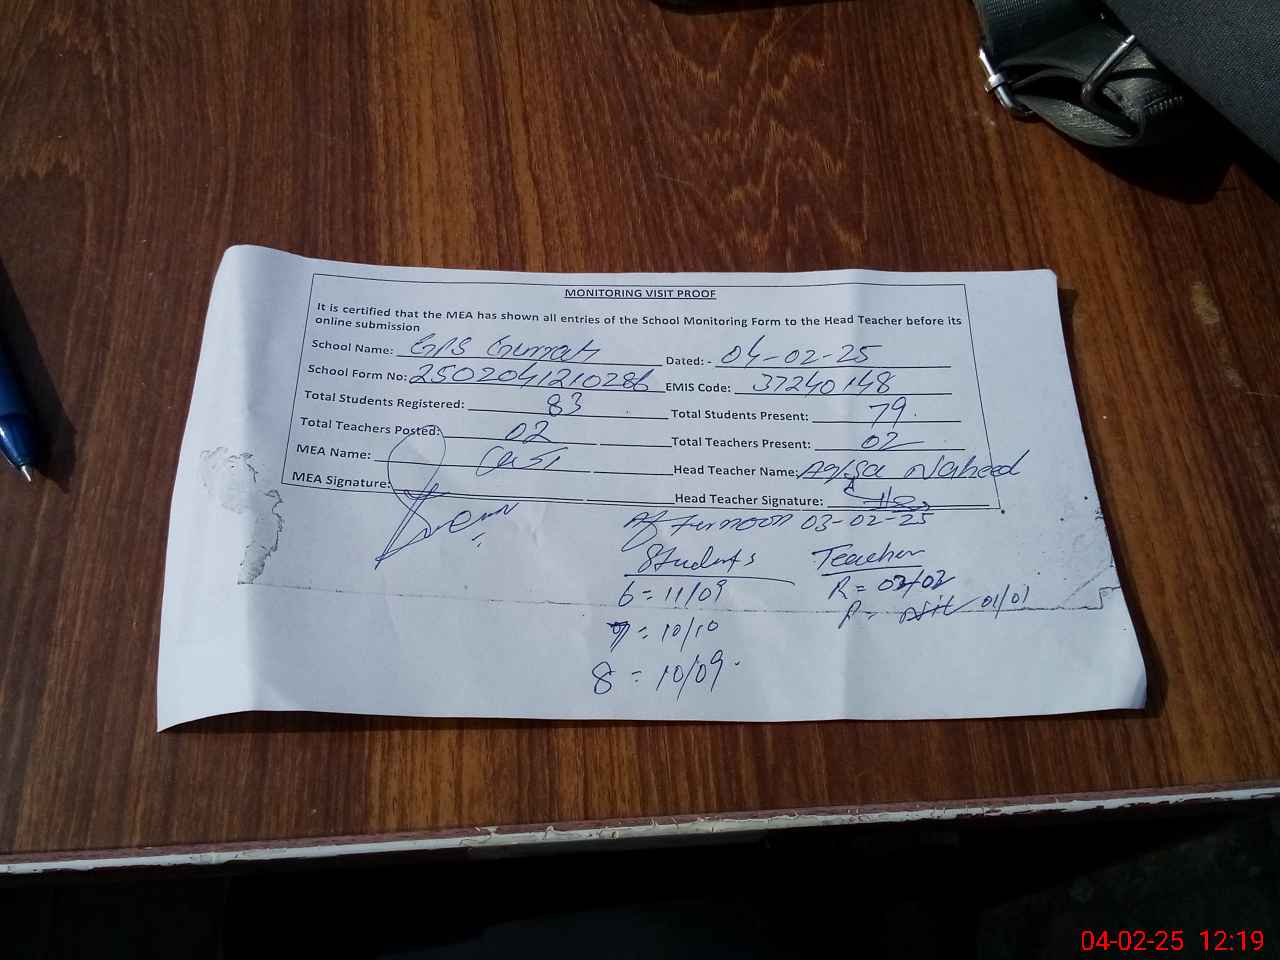 MONITORING VISIT PROOF
It is certified that the MEA has shown all entries of the School Monitoring Form to the Head Teacher before its
online submission
School Name: GPS Gurrah Dated: - 04-02-25
School Form No: 2502041210286 EMIS Code: 37240148
Total Students Registered: 83 Total Students Present: 79
Total Teachers Posted: 02 Total Teachers Present: 02
MEA Name: Head Teacher Name: Aqsa Naheed
MEA Signature: Head Teacher Signature:
Afternoon 03-02-25
Students Teacher
6 = 11/09 R = 02/02
7 = 10/10 P = 01/01
8 = 10/09
04-02-25 12:19